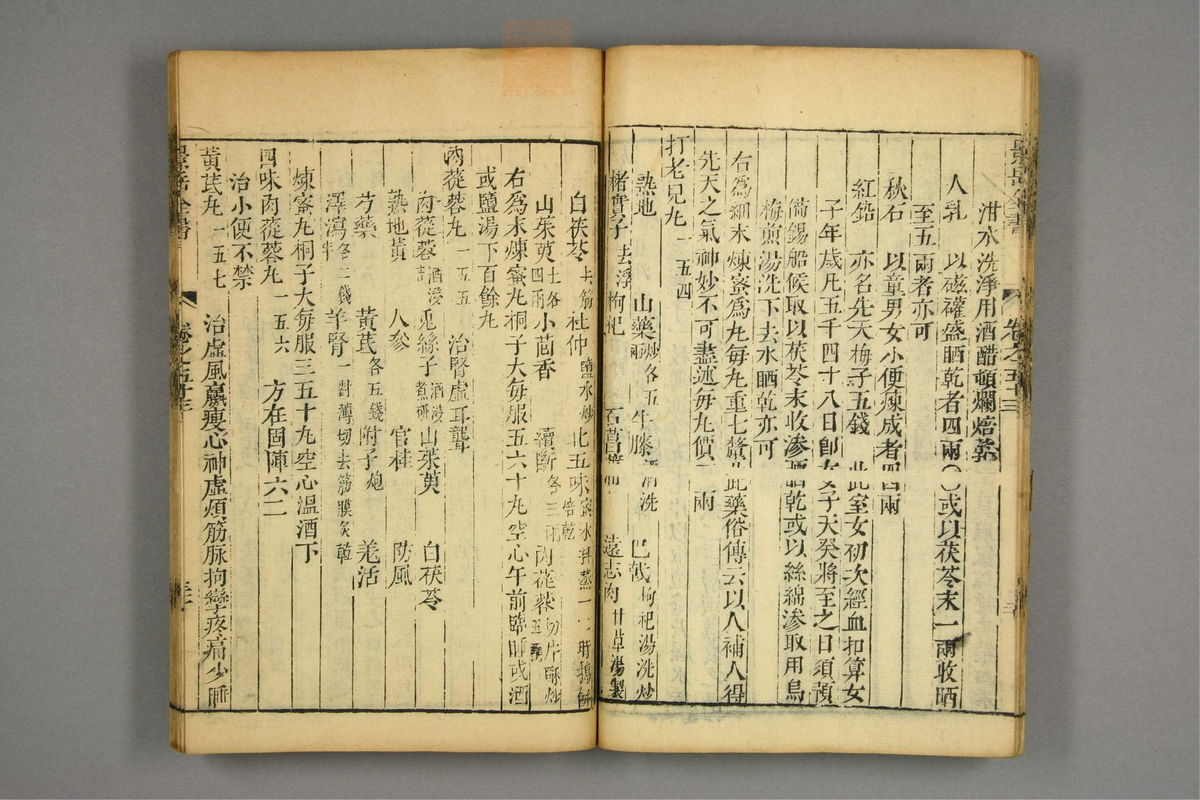 泔水洗淨用酒醋頓爛焙乾
人乳　以磁礶盛晒乾者四兩〇或以茯苓末一兩收晒
至五兩者亦可
秋石　以童男女小便煉成者四兩
紅鉛　亦名先天梅子五錢　此室女初次經血扣算女
子年歲凡五千四十八日卽女子天癸將至之日須預
備錫船候取以茯苓末收滲晒乾或以絲綿滲取用烏
梅煎湯洗下去水晒乾亦可
右爲細末煉蜜爲丸每丸重七釐此藥俗傳云以人補人得
先天之氣神妙不可盡述每丸價一兩
打老兒丸一五四
熟地　山藥炒各五兩　牛膝酒洗　巴戟枸杞湯洗炒
楮實子去浮　枸杞　石菖蒲　遠志肉甘草湯製
白茯苓去筋　杜仲鹽水炒　北五味蜜水拌蒸一　焙乾
山茱萸各四兩　小茴香　續斷各三兩　肉蓯蓉切片酥炒五
右爲末煉蜜丸桐子大每服五六十丸空心午前臨睡或酒
或鹽湯下百餘丸
肉蓯蓉丸一五五　治腎虛耳聾
肉蓯蓉酒浸　兎絲子酒浸煮研　山茱萸　白茯苓
熟地黃　人參　官桂　防風
芍藥　黃芪各五錢　附子炮　羗活
澤瀉各二錢半　羊腎一對薄切去筋膜炙乾
煉蜜丸桐子大每服三五十丸空心溫酒下
四味肉蓯蓉丸一五六　方在固陣六二
治小便不禁
黃芪丸一五七　治虛風羸瘦心神虛煩筋脉拘攣疼痛少睡
景岳全書
卷之五十三
景岳全書
卷之五十三